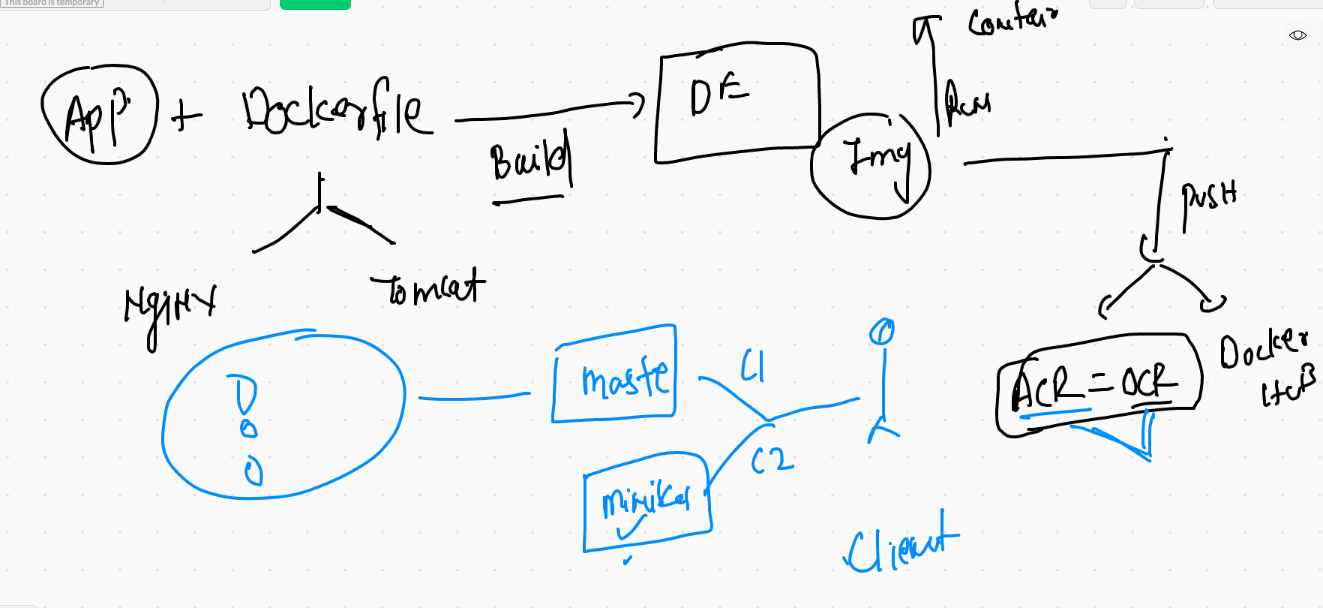 This board is temporary
App + Dockerfile
Build
DE
Img
Run
Push
Nginx
Tomcat
ACR = OCR
Docker
D
Maste
C1
C2
Client